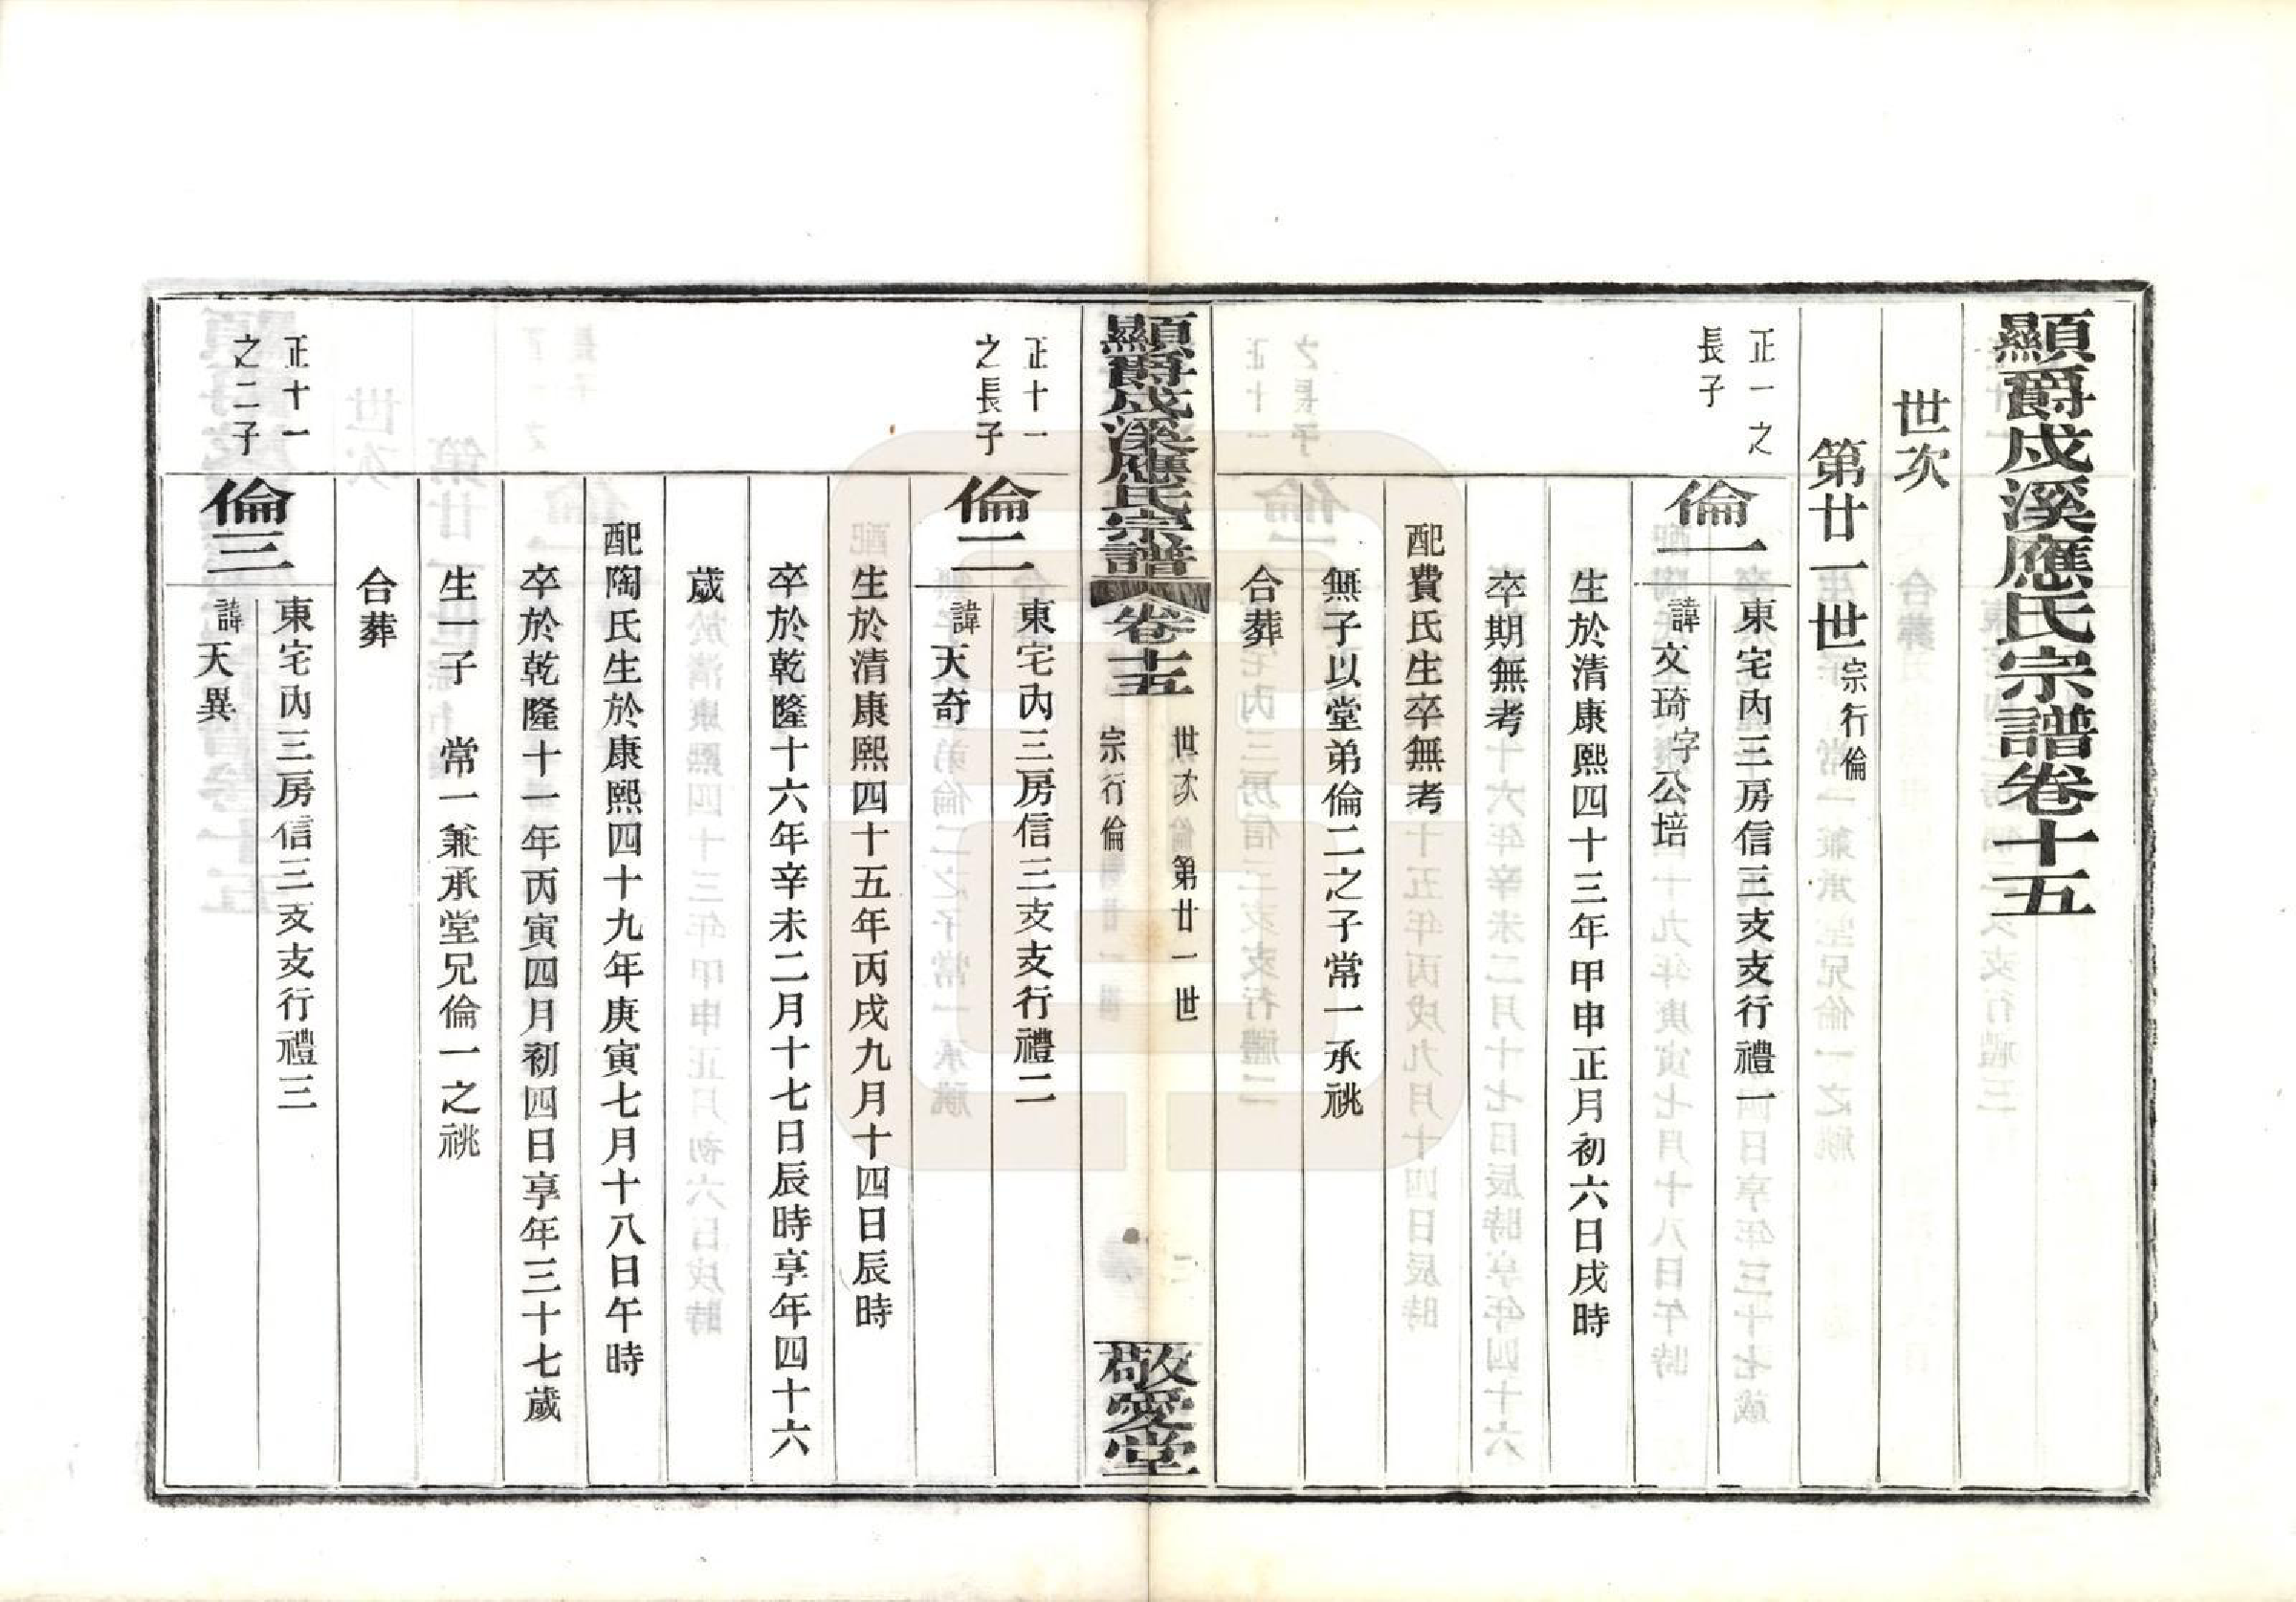 顯爵戍溪應氏宗譜卷十五
世次
第廿一世宗行倫
正一之
長子
倫一
東宅內三房信三支支行禮一
諱文琦字公培
生於清康熙四十三年甲申正月初六日戌時
卒期無考
配費氏生卒無考
無子以堂弟倫二之子常一承祧
合葬
顯爵戍溪應氏宗譜
卷十五
世次
第廿一世
宗行倫
敬愛堂
正十一
之長子
倫二
東宅內三房信三支支行禮二
諱天奇
生於清康熙四十五年丙戌九月十四日辰時
卒於乾隆十六年辛未二月十七日辰時享年四十六
歲
配陶氏生於康熙四十九年庚寅七月十八日午時
卒於乾隆十一年丙寅四月初四日享年三十七歲
生一子 常一兼承堂兄倫一之祧
合葬
正十一
之二子
倫三
東宅內三房信三支支行禮三
諱天異